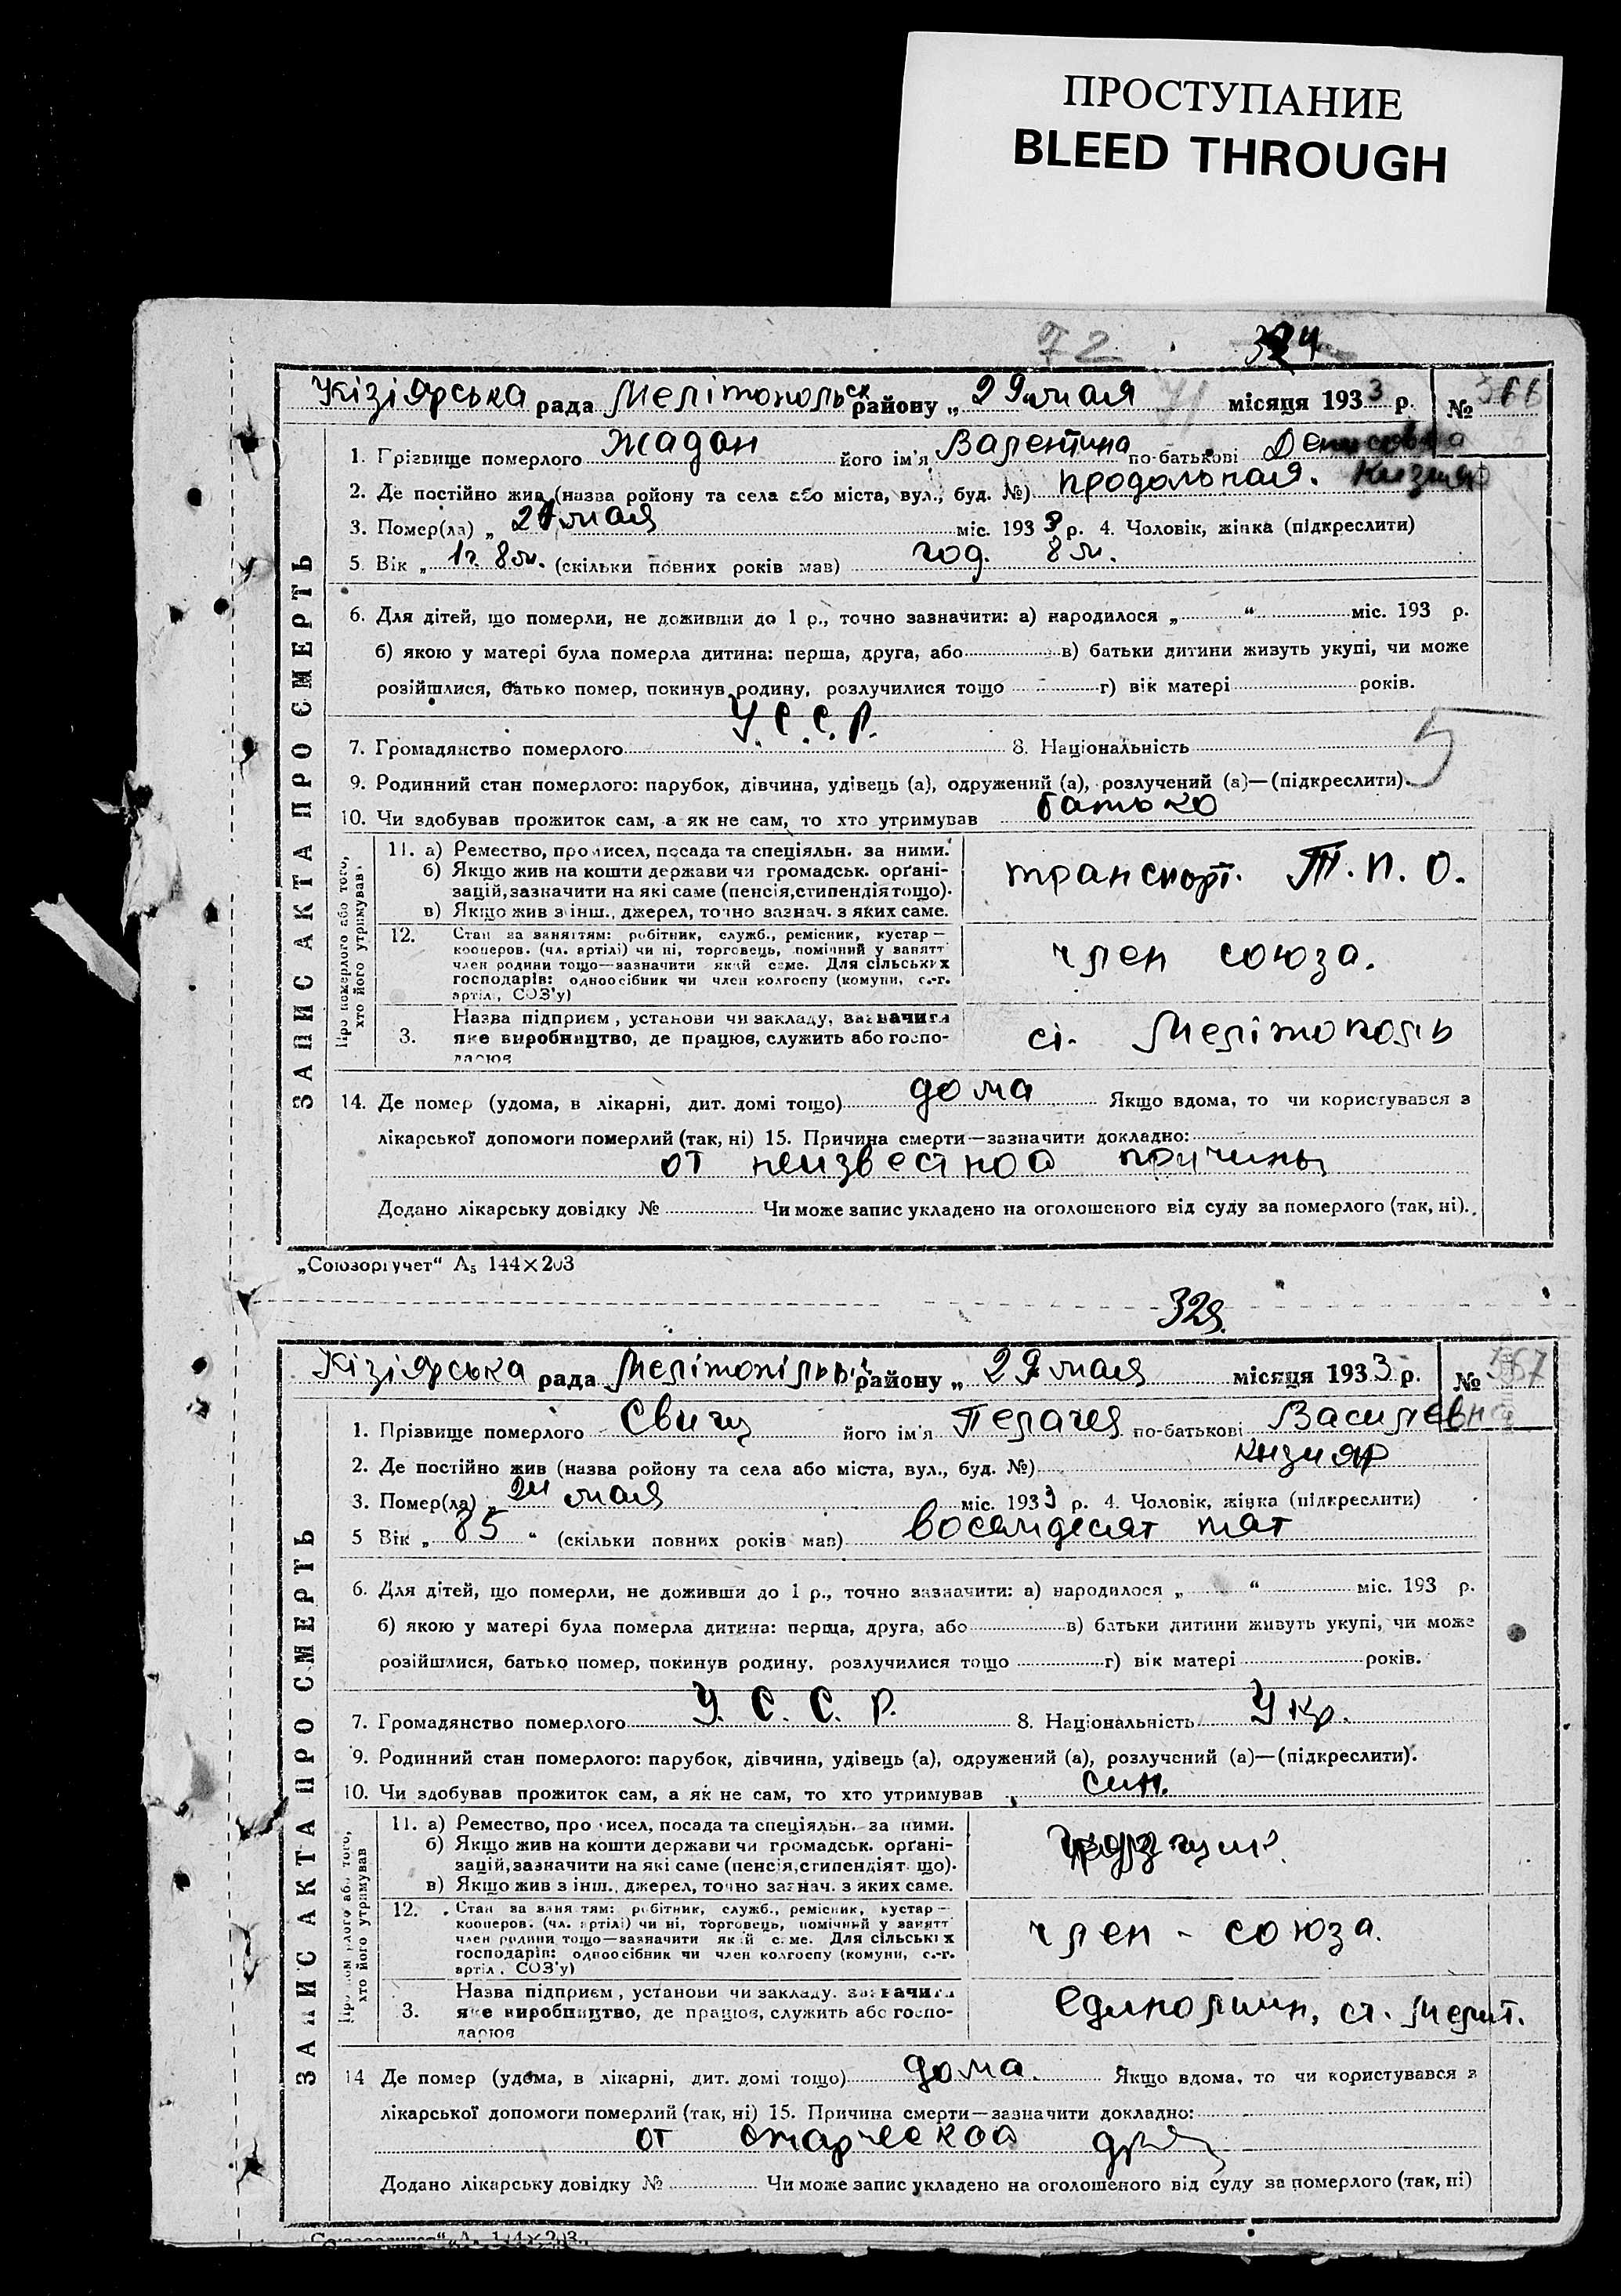 ПРОСТУПАНИЕ
BLEED THROUGH
72
Кізіярська рада Мелітопольск району „ 29 мая місяця 1933 р. № 366
1. Прізвище померлого Жадан його ім'я Валентина по-батькові Денисовна
2. Де постійно жив (назва ройону та села або міста, вул., буд. №) продольная. Кизияр
3. Помер(ла) „ мая міс. 1933 р. 4. Чоловік, жінка (підкреслити)
5. Вік „ 1г. 8м. (скільки повних років мав) год. 8 м.
6. Для дітей, що померли, не доживши до 1 р., точно зазначити: а) народилося „ “ міс. 193 р.
б) якою у матері була померла дитина: перша, друга, або в) батьки дитини живуть укупі, чи може
розійшлися, батько помер, покинув родину, розлучилися тощо г) вік матері років.
7. Громадянство померлого У.С.С.Р. 8. Національність
9. Родинний стан померлого: парубок, дівчина, удівець (а), одружений (а), розлучений (а)—(підкреслити).
10. Чи здобував прожиток сам, а як не сам, то хто утримував батько
ЗАПИС АКТА ПРО СМЕРТЬ
Про померлого або того, хто його утримував
11. а) Ремество, промисел, посада та спеціяльн. за ними.
б) Якщо жив на кошти держави чи громадськ. орґані-
зацій, зазначити на які саме (пенсія, стипендія тощо).
в) Якщо жив з інш., джерел, точно зазнач. з яких саме.
транспорт. Т.П.О.
12. Стан за заняттям: робітник, служб., ремісник, кустар—
кооперов. (чл. артілі) чи ні, торговець, помічний у занятт
член родини тощо—зазначити який саме. Для сільських
господарів: одноосібник чи член колгоспу (комуни, с.-г.
артіл., СОЗ'у)
член союза.
3. Назва підприєм., установи чи закладу, зазначити
яке виробництво, де працює, служить або госпо-
дарює
сі. Мелітополь
14. Де помер (удома, в лікарні, дит. домі тощо) дома Якщо вдома, то чи користувався з
лікарської допомоги померлий (так, ні) 15. Причина смерти—зазначити докладно:
от неизвестной причины
Додано лікарську довідку № Чи може запис укладено на оголошеного від суду за померлого (так, ні).
„Союзоргучет“ А5 144×203
Кізіярська рада району „ 29 мая місяця 1933 р. № 367
1. Прізвище померлого Свищ його ім'я Пелагея по-батькові Василевна
2. Де постійно жив (назва ройону та села або міста, вул., буд. №) кизияр
3. Помер(ла) „ мая міс. 1933 р. 4. Чоловік, жінка (підкреслити)
5 Вік „ 85 “ (скільки повних років мав) восемдесят пят
6. Для дітей, що померли, не доживши до 1 р., точно зазначити: а) народилося „ “ міс. 193 р.
б) якою у матері була померла дитина: перша, друга, або в) батьки дитини живуть укупі, чи може
розійшлися, батько помер, покинув родину, розлучилися тощо г) вік матері років.
7. Громадянство померлого У.С.С.Р. 8. Національність Укр.
9. Родинний стан померлого: парубок, дівчина, удівець (а), одружений (а), розлучений (а)—(підкреслити).
10. Чи здобував прожиток сам, а як не сам, то хто утримував син.
ЗАПИС АКТА ПРО СМЕРТЬ
Про померлого або того, хто його утримував
11. а) Ремество, промисел, посада та спеціяльн. за ними.
б) Якщо жив на кошти держави чи громадськ. орґані-
зацій, зазначити на які саме (пенсія, стипендія тощо).
в) Якщо жив з інш., джерел, точно зазнач. з яких саме.
12. Стан за заняттям: робітник, служб., ремісник, кустар—
кооперов. (чл. артілі) чи ні, торговець, помічний у занятт
член родини тощо—зазначити який саме. Для сільських
господарів: одноосібник чи член колгоспу (комуни, с.-г.
артіл., СОЗ'у)
член - союза.
3. Назва підприєм., установи чи закладу, зазначити
яке виробництво, де працює, служить або госпо-
дарює
ст. Мелит.
14 Де помер (удома, в лікарні, дит. домі тощо) дома. Якщо вдома, то чи користувався з
лікарської допомоги померлий (так, ні) 15. Причина смерти—зазначити докладно:
от старческой
Додано лікарську довідку № Чи може запис укладено на оголошеного від суду за померлого (так, ні)